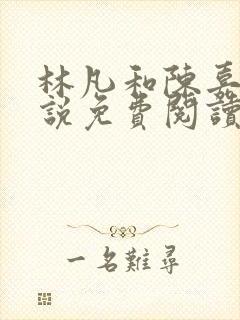 林凡和陳嘉
說免費閱讀
一名難尋